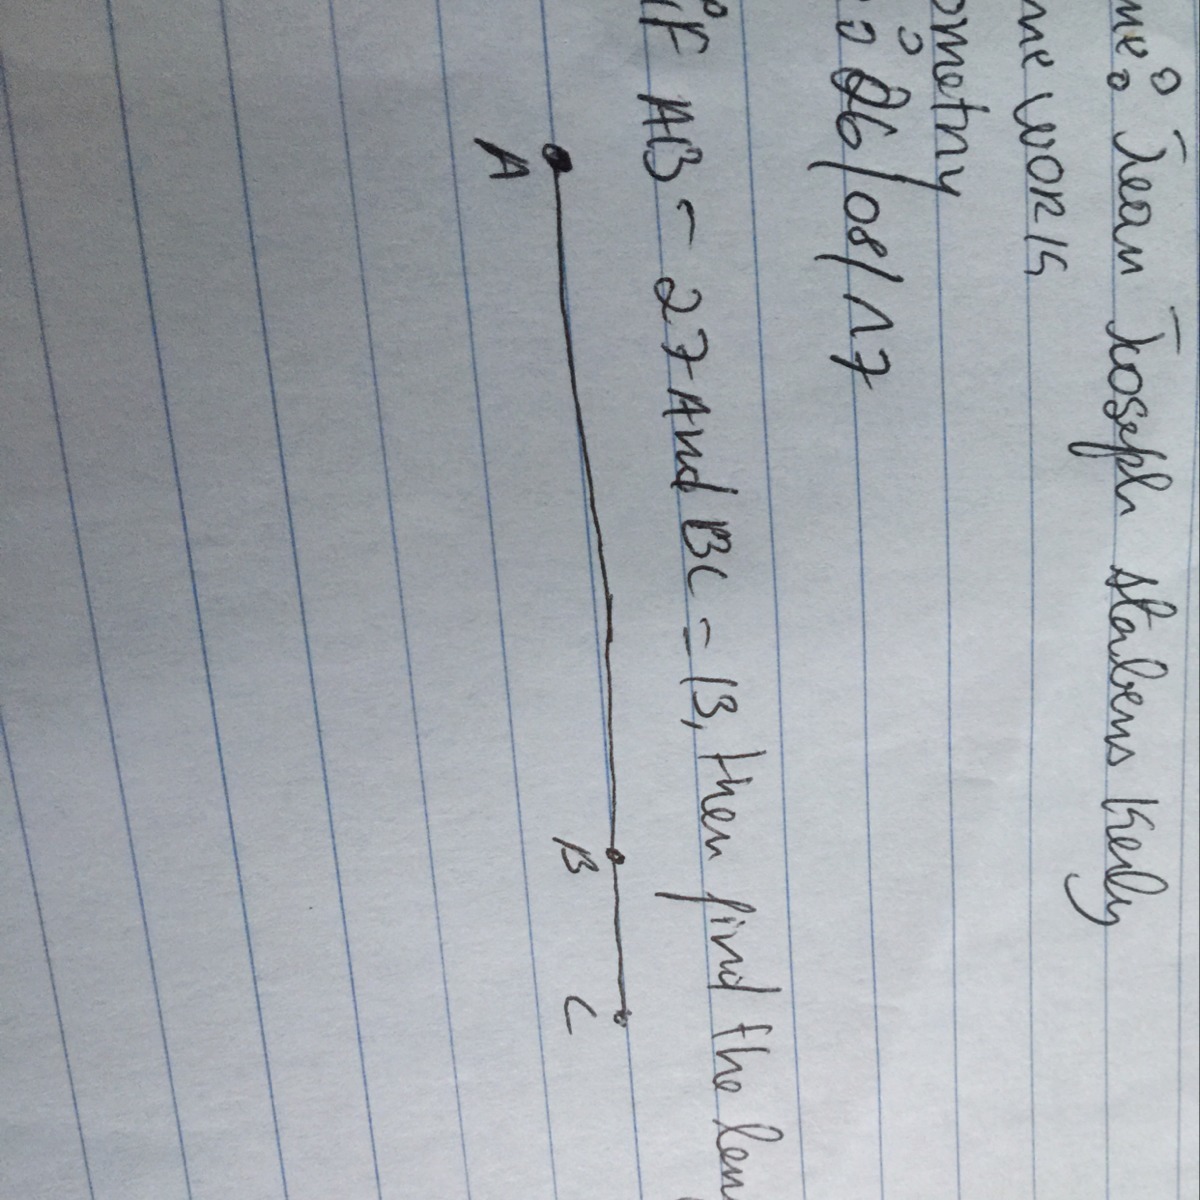 me: Jean Joseph Stabens Kerly
me work
ometry
: 26/08/17
IF AB = 27 And BC = 13, then find the len
A B C